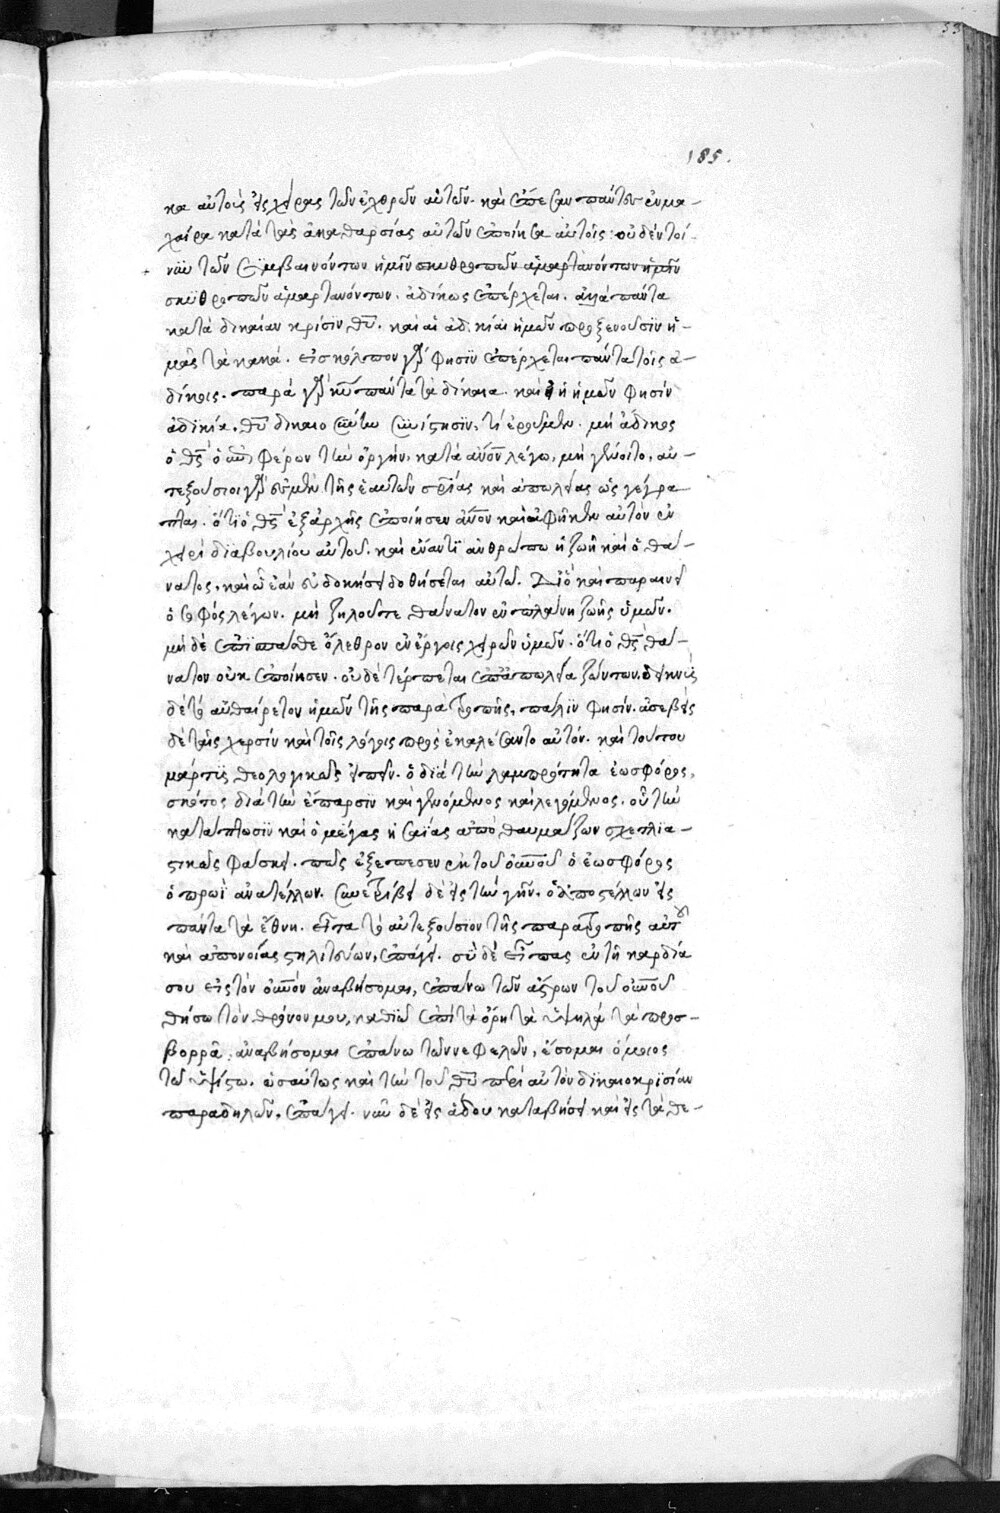 185.
κα αὐτοὺς εἰς χεῖρας τῶν ἐχθρῶν αὐτῶν. καὶ ἔπεσαν πάντες ἐν μα-
χαίρα κατὰ τὰς ἀκαθαρσίας αὐτῶν ἐποίησα αὐτοῖς. οὐδὲν τοί-
νυν τῶν συμβαινόντων ἡμῖν σκυθρωπῶν ἁμαρτανόντων ἡμῖν
σκυθρωπῶν ἁμαρτανόντων. ἀδίκως ἐπέρχεται. ἀλλὰ πάντα
κατὰ δικαίαν κρίσιν θυ. καὶ αἱ ἀδικίαι ἡμῶν προξενοῦσιν ἡ-
μᾶς τὰ κακά. εἰς κόλπον γὰρ φησὶν ἐπέρχεται πάντα τοῖς ἀ-
δίκοις. παρὰ γὰρ κυ πάντα τὰ δίκαια. καὶ εἰ ἡ ἡμῶν φησὶν
ἀδικία, θυ δικαιοσύνην συνίστησιν, τί ἐροῦμεν. μὴ ἄδικος
ὁ θς ὁ ἐπιφέρων τὴν ὀργὴν, κατὰ ανον λέγω, μὴ γένοιτο, αὐ-
τεξούσιοι γὰρ ἐσμὲν τῆς ἑαυτῶν σριας καὶ ἀπωλείας ὡς γέγρα
πται. ὅτι ὁ θς ἐξ ἀρχῆς ἐποίησεν ανον καὶ ἀφῆκεν αὐτὸν ἐν
χειρὶ διαβουλίου αὐτοῦ. καὶ ἔναντι ἀνθρώπω ἡ ζωὴ καὶ ὁ θά-
νατος, καὶ ὃ ἐὰν εὐδοκήσει δοθήσεται αὐτῶ. Διὸ καὶ παραινεῖ
ὁ σοφὸς λέγων. μὴ ζηλοῦτε θάνατον ἐν πλάνη ζωῆς ὑμῶν.
μὴ δὲ ἐπισπᾶσθε ὄλεθρον ἐν ἔργοις χειρῶν ὑμῶν. ὅτι ὁ θς θά-
νατον οὐκ ἐποίησεν. οὐδὲ τέρπεται ἐπ' ἀπωλεία ζώντων. δεικνὺς
δὲ τὸ αὐθαίρετον ἡμῶν τῆς παρατροπῆς, πάλιν φησίν. ἀσεβεῖς
δὲ ταῖς χερσὶν καὶ τοῖς λόγοις προσεκαλέσαντο αὐτόν. καὶ τούτου
μάρτυς θεολογικῶς εἰπεῖν. ὁ διὰ τὴν λαμπρότητα ἑωσφόρος,
σκότος διὰ τὴν ἔπαρσιν καὶ γενόμενος καὶ λεγόμενος. οὗ τὴν
κατάπτωσιν καὶ ὁ μέγας ἡσαΐας ἀπο θαυμάζων σχετλια-
στικῶς φάσκει. πῶς ἐξέπεσεν ἐκ τοῦ ουνου ὁ ἑωσφόρος
ὁ πρωῒ ἀνατέλλων. συνετρίβη δὲ εἰς τὴν γῆν. ὁ ἀποστέλλων εἰς
πάντα τὰ ἔθνη. εἶτα τὸ αὐτεξούσιον τῆς παρατροπῆς αὐτοῦ
καὶ ἀπονοίας στηλιτεύων, ἐπάγει. σὺ δὲ εἶπας ἐν τῆ καρδία
σου εἰς τὸν ουνον ἀναβήσομαι, ἐπάνω τῶν ἄστρων τοῦ ουνου
θήσω τὸν θρόνον μου, καθιῶ ἐπὶ τὰ ὄρη τὰ ὑψηλὰ τὰ πρὸς-
βορρᾶ. ἀναβήσομαι ἐπάνω τῶν νεφελῶν, ἔσομαι ὅμοιος
τῶ ὑψίστω. ὡσαύτως καὶ τὴν τοῦ θυ περὶ αὐτὸν δικαιοκρισίαν
παραδηλῶν, ἐπάγει. νῦν δὲ εἰς ἅδου καταβήση καὶ εἰς τὰ θε-